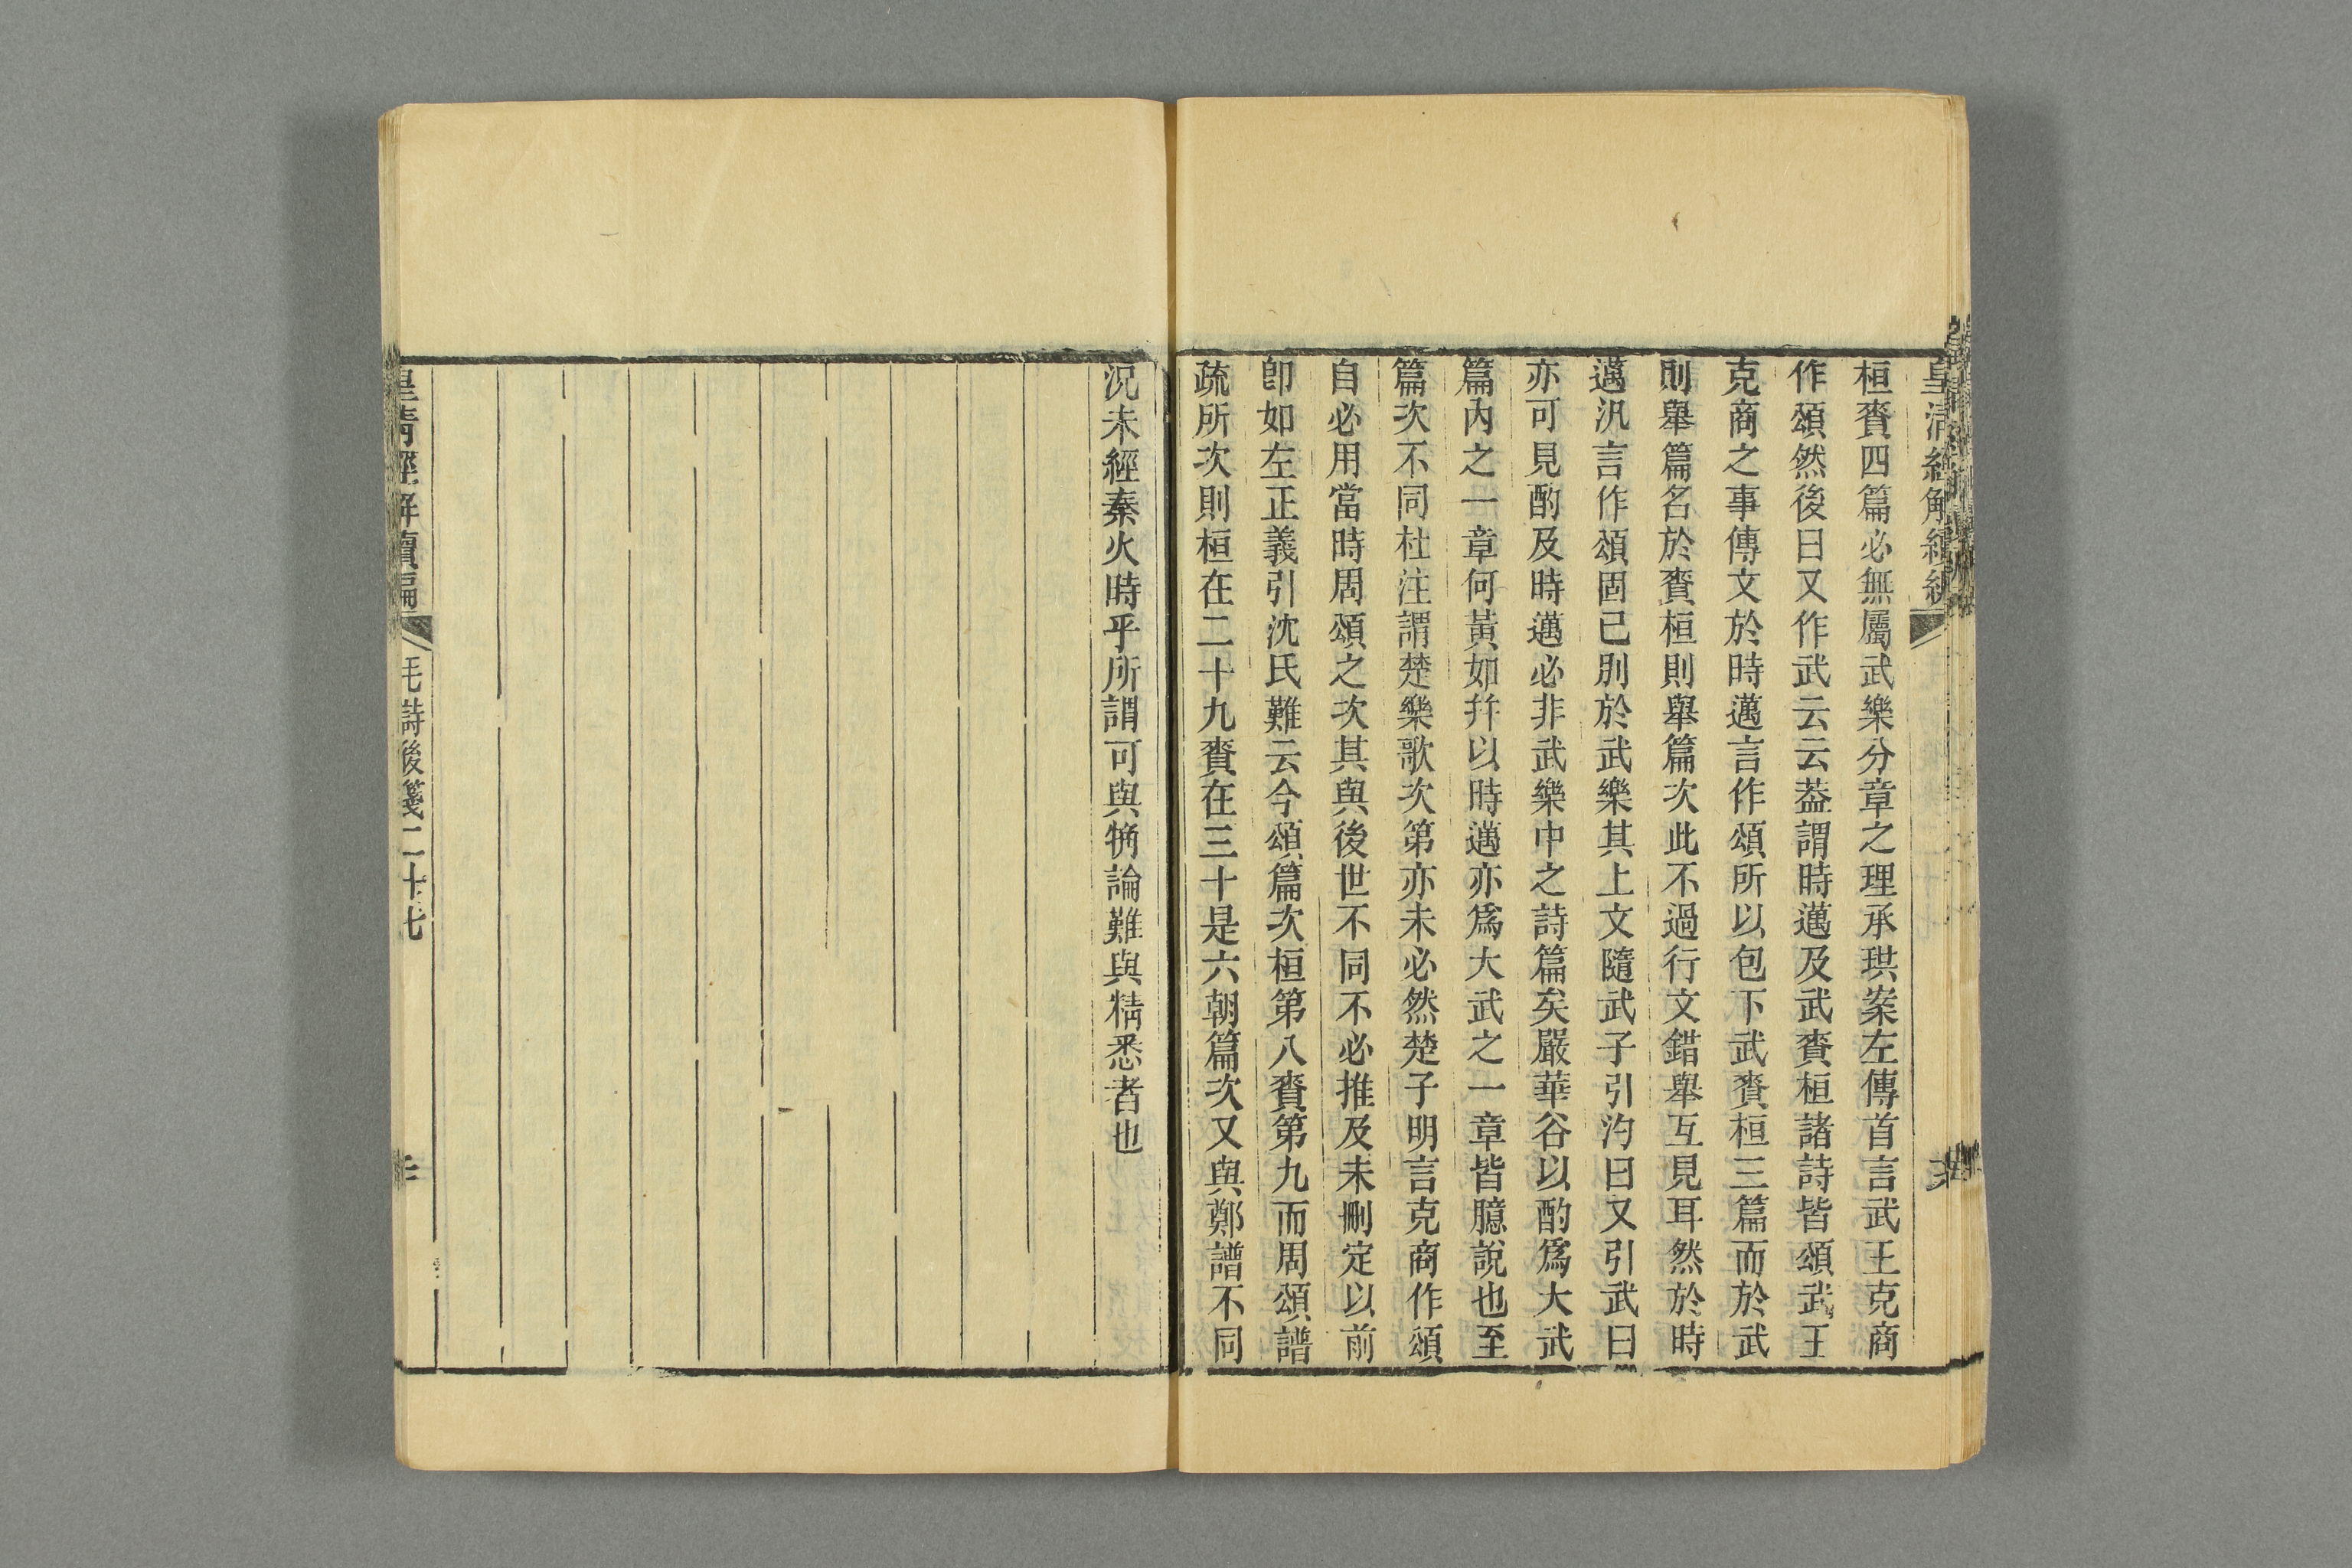 皇清經解續編
桓賚四篇必無屬武樂分章之理承珙案左傳首言武王克商
作頌然後曰又作武云云葢謂時邁及武賚桓諸詩皆頌武王
克商之事傳文於時邁言作頌所以包下武賚桓三篇而於武
則舉篇名於賚桓則舉篇次此不過行文錯舉互見耳然於時
邁汎言作頌固已別於武樂其上文隨武子引汋曰又引武曰
亦可見酌及時邁必非武樂中之詩篇矣嚴華谷以酌爲大武
篇內之一章何黃如幷以時邁亦爲大武之一章皆臆說也至
篇次不同杜注謂楚樂歌次第亦未必然楚子明言克商作頌
自必用當時周頌之次其與後世不同不必推及未刪定以前
卽如左正義引沈氏難云今頌篇次桓第八賚第九而周頌譜
疏所次則桓在二十九賚在三十是六朝篇次又與鄭譜不同
況未經秦火時乎所謂可與觕論難與精悉者也
皇清經解續編 毛詩後箋二十七